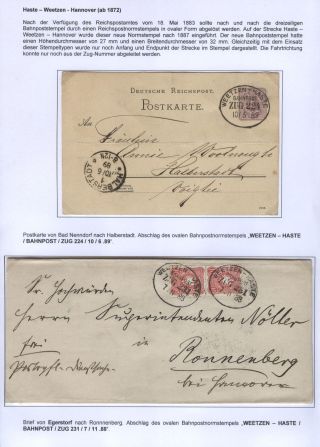 Haste – Weetzen - Hannover (ab 1872)
Nach der Verfügung des Reichspostamtes vom 18. Mai 1883 sollte nach und nach die dreizeiligen
Bahnpoststempel durch einen Reichspostnormstempels in ovaler Form abgelöst werden. Auf der Strecke Haste -
Weetzen - Hannover wurde dieser neue Normstempel nach 1887 eingeführt. Der neue Bahnpoststempel hatte
einen Höhendurchmesser von 27 mm und einen Breitendurchmesser von 32 mm. Gleichzeitig mit dem Einsatz
dieser Stempeltypen wurde nur noch Anfang und Endpunkt der Strecke im Stempel dargestellt. Die Fahrtrichtung
konnte nur noch aus der Zug-Nummer abgeleitet werden.
DEUTSCHE REICHSPOST.
POSTKARTE.
WEETZEN-HASTE
BAHNPOST
ZUG 224
10 6 89
An
Fräulein
Halberstadt
HALBERSTADT
10/6
89
8-12N
Postkarte von Bad Nenndorf nach Halberstadt. Abschlag des ovalen Bahnpostnormstempels „WEETZEN – HASTE
/ BAHNPOST / ZUG 224 / 10 / 6 .89".
WEETZEN-HASTE
88
Sr. Hochwürden
Herrn Superintendenten Nölter
frei
Ronnenberg
bei Hannover
Brief von Egerstorf nach Ronnnenberg. Abschlag des ovalen Bahnpostnormstempels „WEETZEN – HASTE /
BAHNPOST / ZUG 231 / 7 / 11 .88".